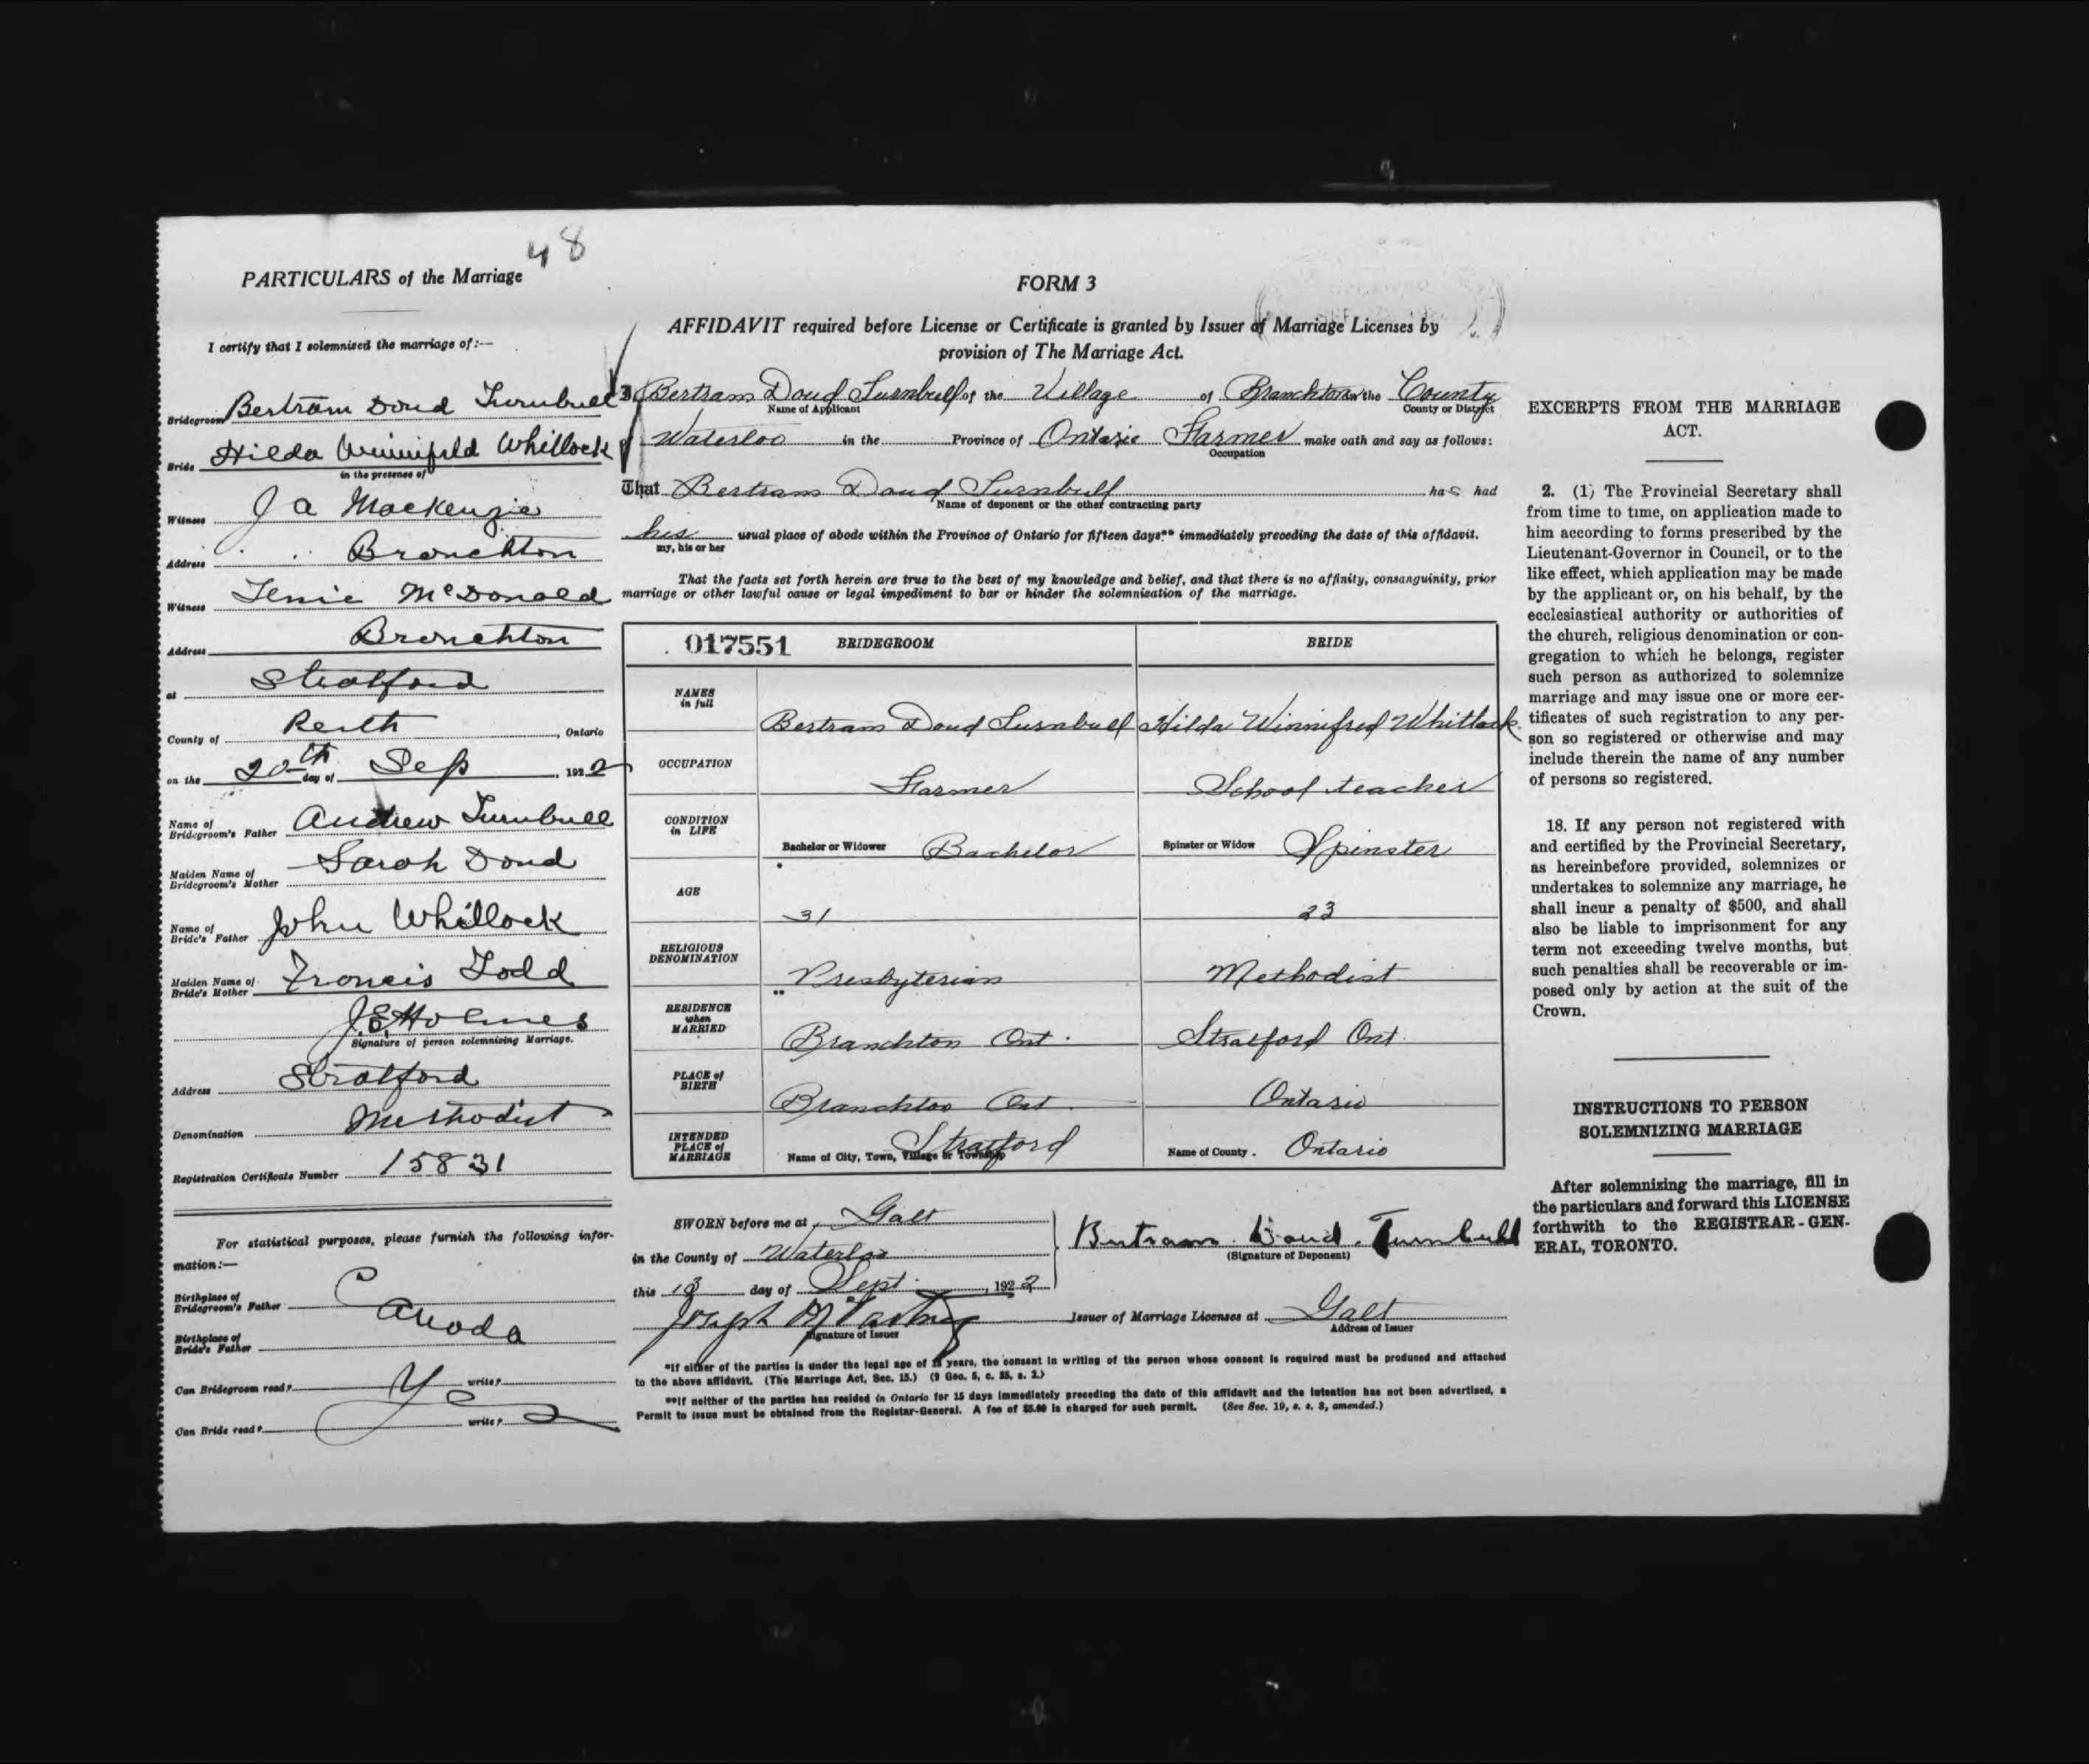 48
PARTICULARS of the Marriage
I certify that I solemnized the marriage of:—
Bridegroom Bertram Doud Turnbull
Bride Hilda Winnifred Whitlock
in the presence of
Witness J A Mackenzie
Address Branchton
Witness McDonald
Address Branchton
at Stratford
County of Perth, Ontario
on the 20th day of Sep, 1922
Name of Bridegroom's Father Andrew Turnbull
Maiden Name of Bridegroom's Mother Sarah Doud
Name of Bride's Father John Whitlock
Maiden Name of Bride's Mother Francis Todd
J.E. Holmes
Signature of person solemnizing Marriage.
Address Stratford
Denomination Methodist
Registration Certificate Number 15831
For statistical purposes, please furnish the following infor-
mation:—
Birthplace of Bridegroom's Father
Canada
Birthplace of Bride's Father
Can Bridegroom read? write?
Yes
Can Bride read? write?
FORM 3
AFFIDAVIT required before License or Certificate is granted by Issuer of Marriage Licenses by
provision of The Marriage Act.
I Bertram Doud Turnbull of the Village of Branchton in the County
Name of Applicant County or District
of Waterloo in the Province of Ontario Farmer make oath and say as follows:
Occupation
That Bertram Doud Turnbull has had
Name of deponent or the other contracting party
his usual place of abode within the Province of Ontario for fifteen days** immediately preceding the date of this affidavit.
my, his or her
That the facts set forth herein are true to the best of my knowledge and belief, and that there is no affinity, consanguinity, prior
marriage or other lawful cause or legal impediment to bar or hinder the solemnization of the marriage.
017551 BRIDEGROOM BRIDE
NAMES in full Bertram Doud Turnbull Hilda Winnifred Whitlock
OCCUPATION Farmer School teacher
CONDITION in LIFE Bachelor or Widower Bachelor Spinster or Widow Spinster
AGE 31 23
RELIGIOUS DENOMINATION Presbyterian Methodist
RESIDENCE when MARRIED Branchton Ont. Stratford Ont.
PLACE of BIRTH Branchton Ont Ontario
INTENDED PLACE of MARRIAGE Name of City, Town, Village or Township Stratford Name of County. Ontario
SWORN before me at Galt
in the County of Waterloo
this 13 day of Sept., 1922
Joseph
Signature of Issuer
Bertram Doud Turnbull
(Signature of Deponent)
Issuer of Marriage Licenses at Galt
Address of Issuer
*If either of the parties is under the legal age of 18 years, the consent in writing of the person whose consent is required must be produced and attached
to the above affidavit. (The Marriage Act, Sec. 15.) (9 Geo. 5, c. 35, s. 2.)
**If neither of the parties has resided in Ontario for 15 days immediately preceding the date of this affidavit and the intention has not been advertised, a
Permit to issue must be obtained from the Registar-General. A fee of $5.00 is charged for such permit. (See Sec. 19, s. s. 3, amended.)
EXCERPTS FROM THE MARRIAGE
ACT.
2. (1) The Provincial Secretary shall
from time to time, on application made to
him according to forms prescribed by the
Lieutenant-Governor in Council, or to the
like effect, which application may be made
by the applicant or, on his behalf, by the
ecclesiastical authority or authorities of
the church, religious denomination or con-
gregation to which he belongs, register
such person as authorized to solemnize
marriage and may issue one or more cer-
tificates of such registration to any per-
son so registered or otherwise and may
include therein the name of any number
of persons so registered.
18. If any person not registered with
and certified by the Provincial Secretary,
as hereinbefore provided, solemnizes or
undertakes to solemnize any marriage, he
shall incur a penalty of $500, and shall
also be liable to imprisonment for any
term not exceeding twelve months, but
such penalties shall be recoverable or im-
posed only by action at the suit of the
Crown.
INSTRUCTIONS TO PERSON
SOLEMNIZING MARRIAGE
After solemnizing the marriage, fill in
the particulars and forward this LICENSE
forthwith to the REGISTRAR-GEN-
ERAL, TORONTO.